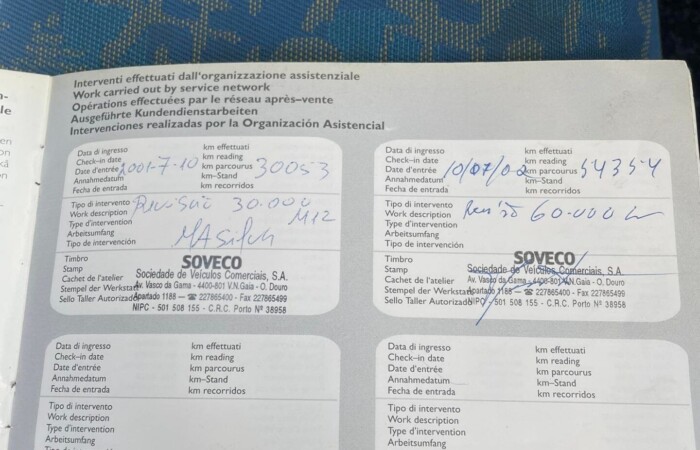 Interventi effettuati dall'organizzazione assistenziale
Work carried out by service network
Opérations effectuées par le réseau après-vente
Ausgeführte Kundendienstarbeiten
Intervenciones realizadas por la Organización Asistencial
Data di ingresso km effettuati
Check-in date km reading
Date d'entrée 2001-7-10 km parcourus 30053
Annahmedatum km-Stand
Fecha de entrada km recorridos
Tipo di intervento Revisão 30.000
Work description M12
Type d'intervention
Arbeitsumfang
Tipo de intervención
Timbro SOVECO
Stamp Sociedade de Veículos Comerciais, S.A.
Cachet de l'atelier Av. Vasco da Gama - 4400-801 V.N.Gaia - O. Douro
Stempel der Werkstatt Apartado 1188 - ☎ 227865400 - Fax 227865499
Sello Taller Autorizado NIPC - 501 508 155 - C.R.C. Porto Nº 38958
Data di ingresso km effettuati
Check-in date km reading
Date d'entrée 10/07/02 km parcourus 54354
Annahmedatum km-Stand
Fecha de entrada km recorridos
Tipo di intervento Revisão 60.000
Work description
Type d'intervention
Arbeitsumfang
Tipo de intervención
Timbro SOVECO
Stamp Sociedade de Veículos Comerciais, S.A.
Cachet de l'atelier Av. Vasco da Gama - 4400-801 V.N.Gaia - O. Douro
Stempel der Werkstatt Apartado 1188 - ☎ 227865400 - Fax 227865499
Sello Taller Autorizado NIPC - 501 508 155 - C.R.C. Porto Nº 38958
Data di ingresso km effettuati
Check-in date km reading
Date d'entrée km parcourus
Annahmedatum km-Stand
Fecha de entrada km recorridos
Tipo di intervento
Work description
Type d'intervention
Arbeitsumfang
Data di ingresso km effettuati
Check-in date km reading
Date d'entrée km parcourus
Annahmedatum km-Stand
Fecha de entrada km recorridos
Tipo di intervento
Work description
Type d'intervention
Arbeitsumfang